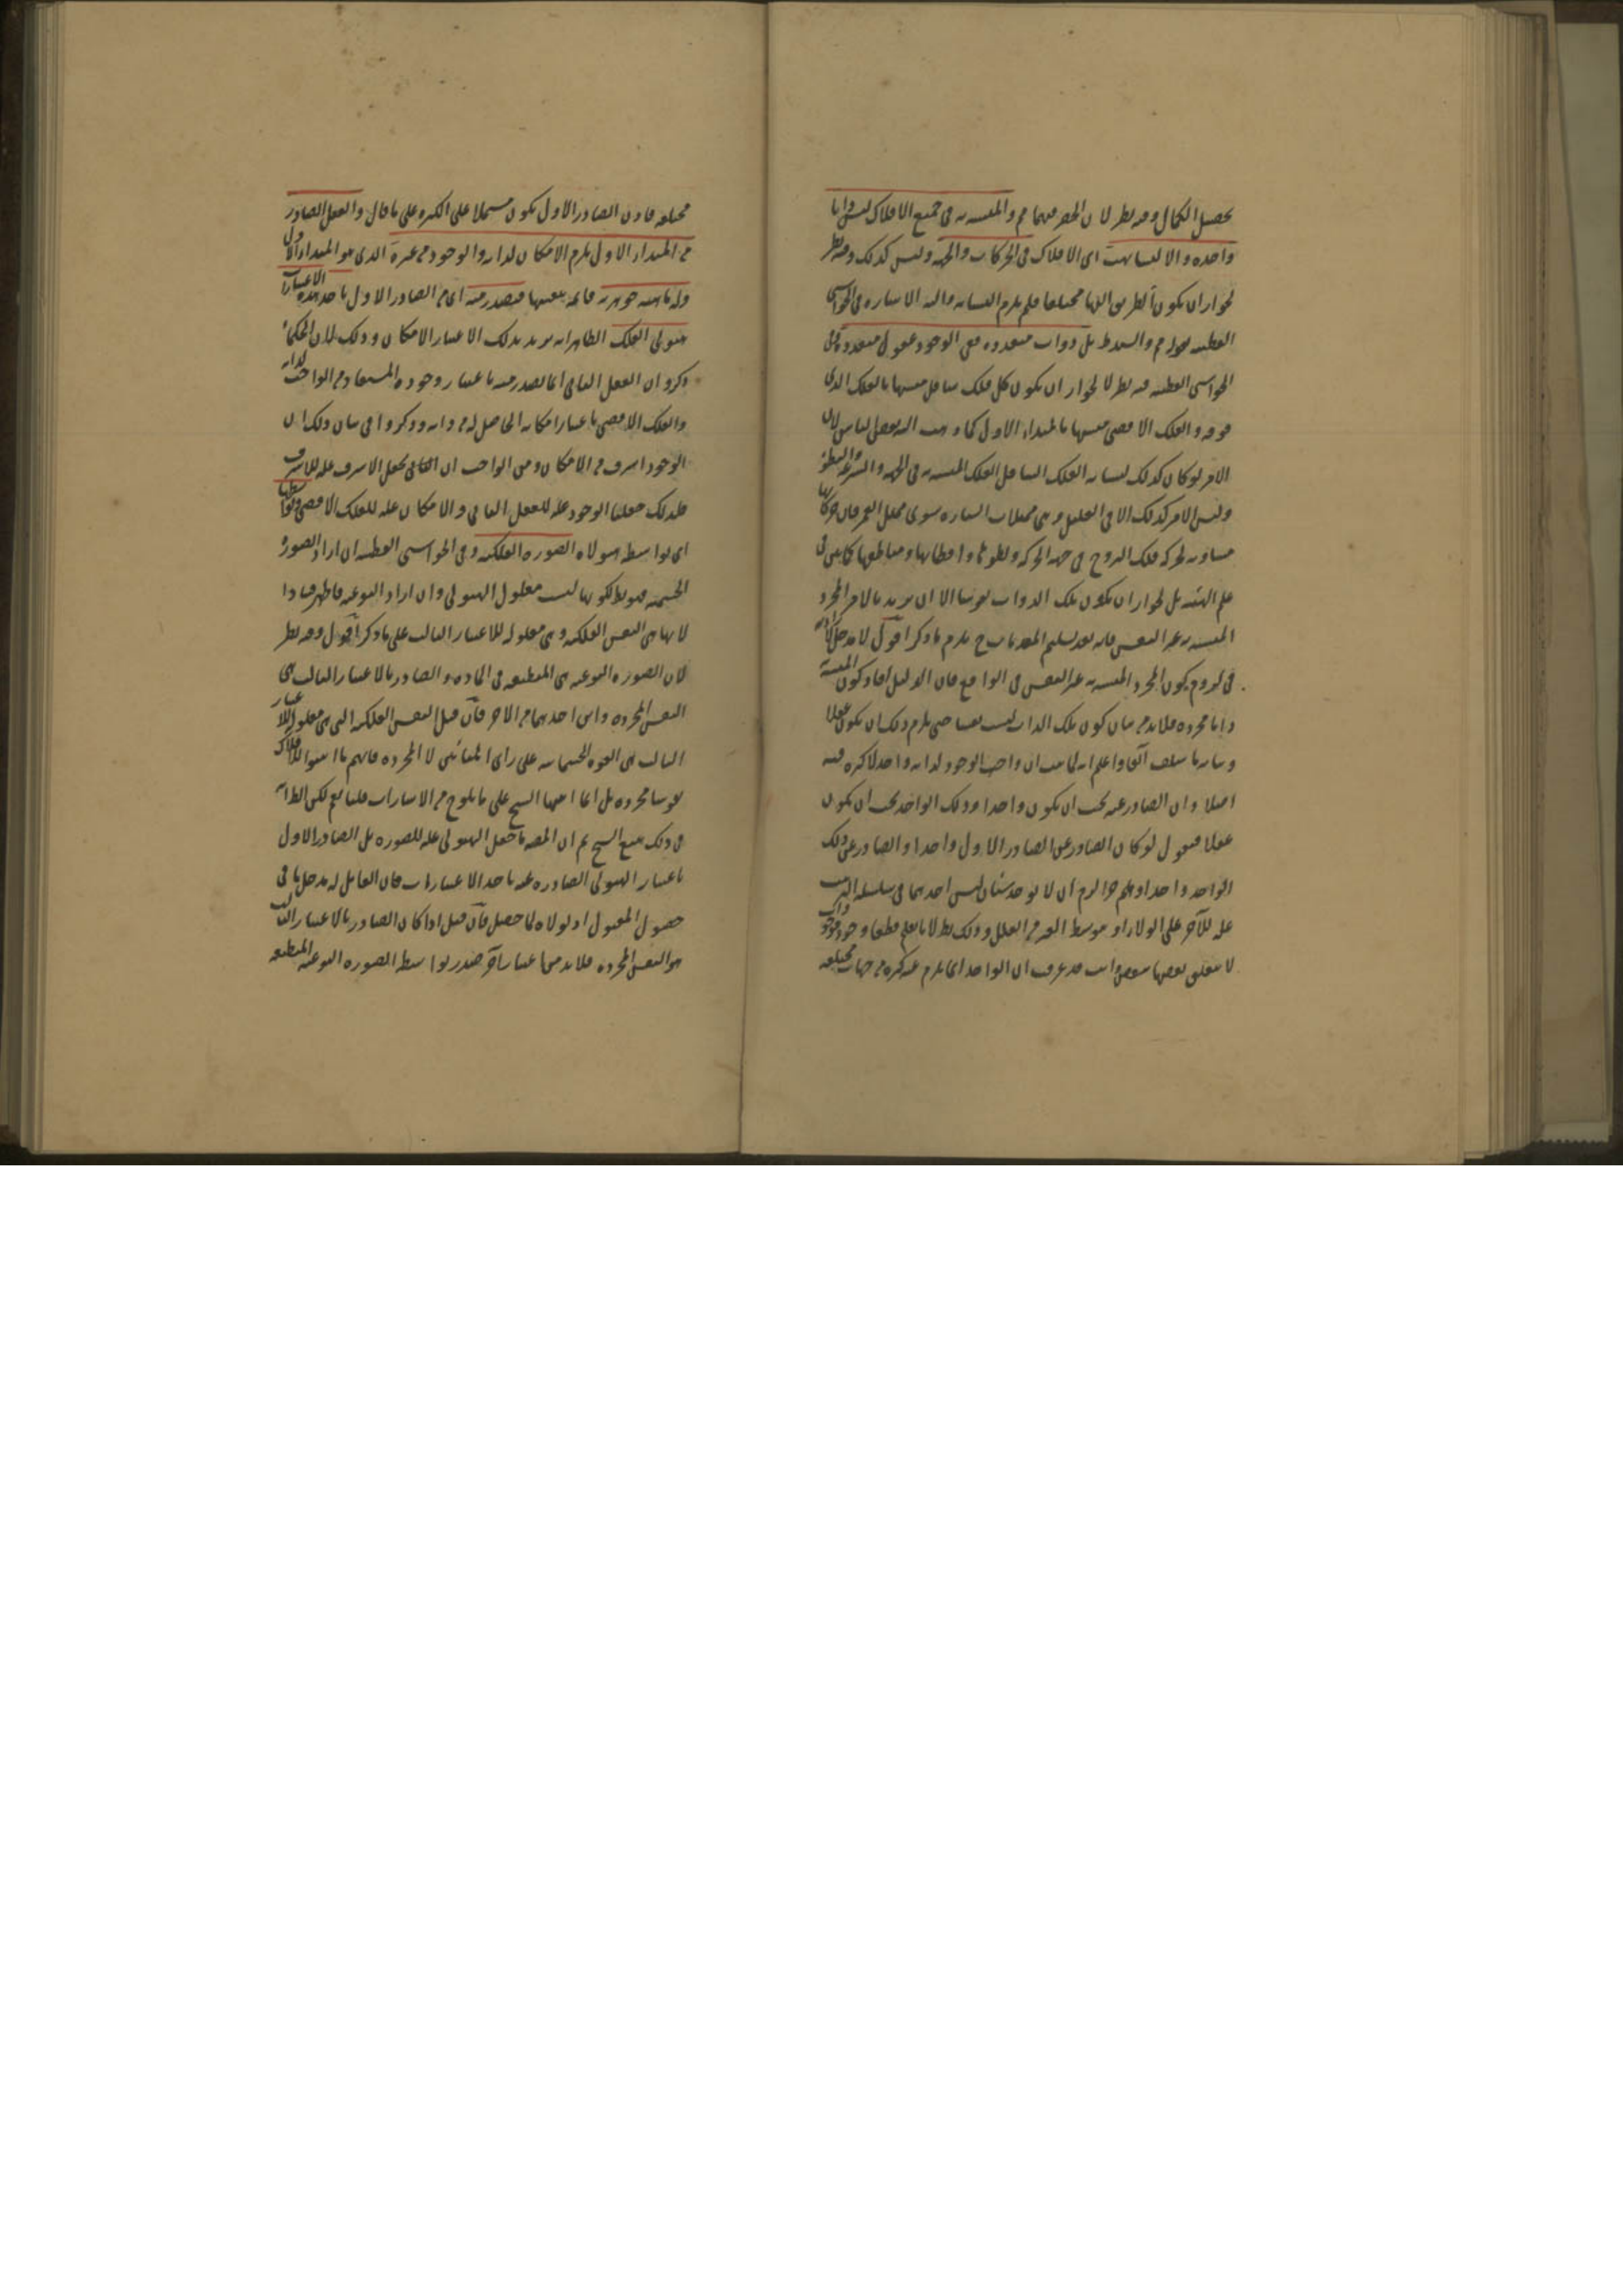 يحصل الكمال وفيه نظر لان الحصر فيهما مم والمتشبه به في جميع الافلاك ليس ذاتا
واحدة والا لتشابهت اى الافلاك في الحركات والجهة وليس كذلك وفيه نظر
لجواز ان يكون الطريق اليها مختلفا فلم يلزم التشابه واليه الاشارة في الحواشى
القطبية بل ذوات متعددة ففى الوجود عقول متعددة وفى
الحواشى القطبية فيه نظر لا لجواز ان يكون كل فلك سافل متشبها بالفلك الذى
فوقه والفلك الاقصى متشبها بالمبداء الاول كما ذهب اليه بعض الناس لان
الامر لو كان كذلك لشابه الفلك السافل الفلك المتشبه به في الجهة والسرعة والبطؤ
وليس الامر كذلك الا في القليل وهى ممثلات السيارة سوى ممثل القمر فان حركاتها
مساوية لحركة فلك البروج في جهة الحركة وبطوئها واقطابها ومناطقها كما بين في
علم الهيئة بل لجواز ان يكون تلك الذوات نفوسا الا ان يريد بالامر المجرد
المتشبه به غير النفس فانه بعد تسليم المقدمات ح يلزم ما ذكر اقول لا مدخل
في لزوم كون المجرد المتشبه به غير النفس في الواقع فان الدليل افاد كون المتشبه به
ذاتا مجردة فلابد من بيان كون تلك الذات ليست نفسا حتى يلزم ذلك ان يكون عقلا
وبيانه ما سلف آنفا واعلم انه لما ثبت ان واجب الوجود لذاته واحد لا كثرة فيه
اصلا وان الصادر عنه يجب ان يكون واحدا وذلك الواحد يجب ان يكون
عقلا فنقول لو كان الصادر عن الصادر الاول واحدا والصادر عن ذلك
الواحد واحدا وهلم جرا لزم ان لا يوجد شيئان ليس احدهما في سلسلة الترتيب
علة للآخر على الولاء او بتوسط الغير من العلل وذلك بط لانا نعلم قطعا وجود موجودات
لا يتعلق بعضها ببعض وانت قد عرفت ان الواحد انما يلزم عنه كثرة من جهات مختلفة
مختلفة فاذن الصادر الاول يكون مشتملا على الكثرة على ما قال والعقل الصادر
من المبداء الاول يلزمه الامكان لذاته والوجود من غيره الذى هو المبداء الاول
وله ماهية جوهرية قائمة بنفسها فيصدر منه اى من الصادر الاول باحد هذه الاعتبارات
هيولى الفلك الظاهر انه يريد بذلك الاعتبار الامكان وذلك لان الحكماء
ذكروا ان العقل الثانى انما يصدر منه باعتبار وجوده المستفاد من الواجب لذاته
والفلك الاقصى باعتبار امكانه الحاصل له من ذاته وذكروا في بيان ذلك ان
الوجود اشرف من الامكان ومن الواجب ان يجعل الاشرف علة للاشرف
فلذلك جعلنا الوجود علة للعقل الثانى والامكان علة للفلك الاقصى وبواسطتها
اى بواسطة هيولاه الصورة الفلكية وفى الحواشى القطبية ان اراد الصورة
الجسمية فهو بط لكونها ليست معلول الهيولى وان اراد النوعية فاظهر فسادا
لانها هى النفس الفلكية وهى معلولة للاعتبار الثالث على ما ذكر اقول وفيه نظر
لان الصورة النوعية هى المنطبعة في المادة والصادر بالاعتبار الثالث هى
النفس المجردة واين احدهما من الاخر فان قيل النفس الفلكية التى هى معلولة للاعتبار
الثالث هى القوة الجسمانية على راى المشائين لا المجردة فانهم ما اثبتوا للافلاك
نفوسا مجردة بل انما اثبتها الشيخ على ما يلوح من الاشارات قلنا نعم لكن الظاهر
في ذلك تتبع الشيخ ثم ان المصنف ما جعل الهيولى علة للصورة بل الصادر الاول
باعتبار الهيولى الصادرة عنه باحد الاعتبارات فان القابل له مدخل ما في
حصول المقبول اذ لولاه لما حصل فان قيل اذا كان الصادر بالاعتبار الثالث
هو النفس المجردة فلابد من اعتبار آخر صدر بواسطة الصورة النوعية المنطبعة